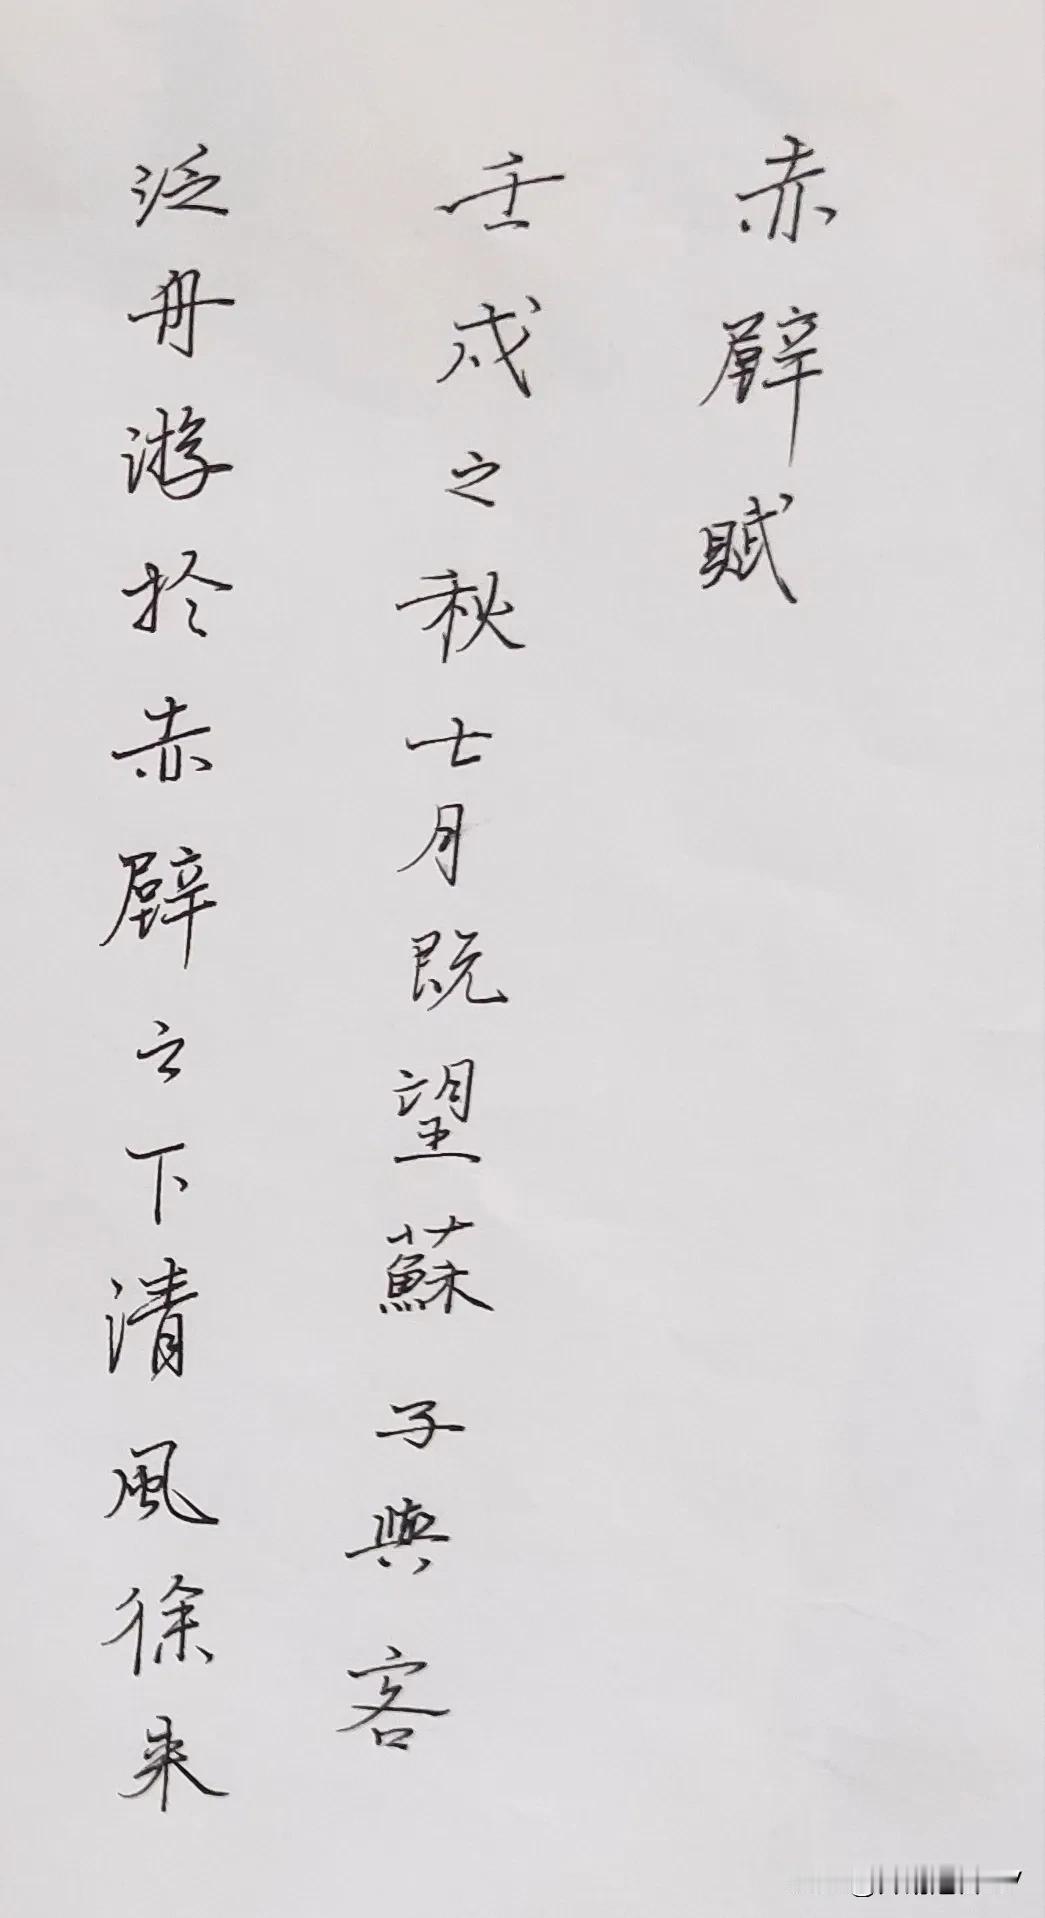 赤壁賦
壬戌之秋七月既望蘇子與客
泛舟游於赤壁之下清風徐来